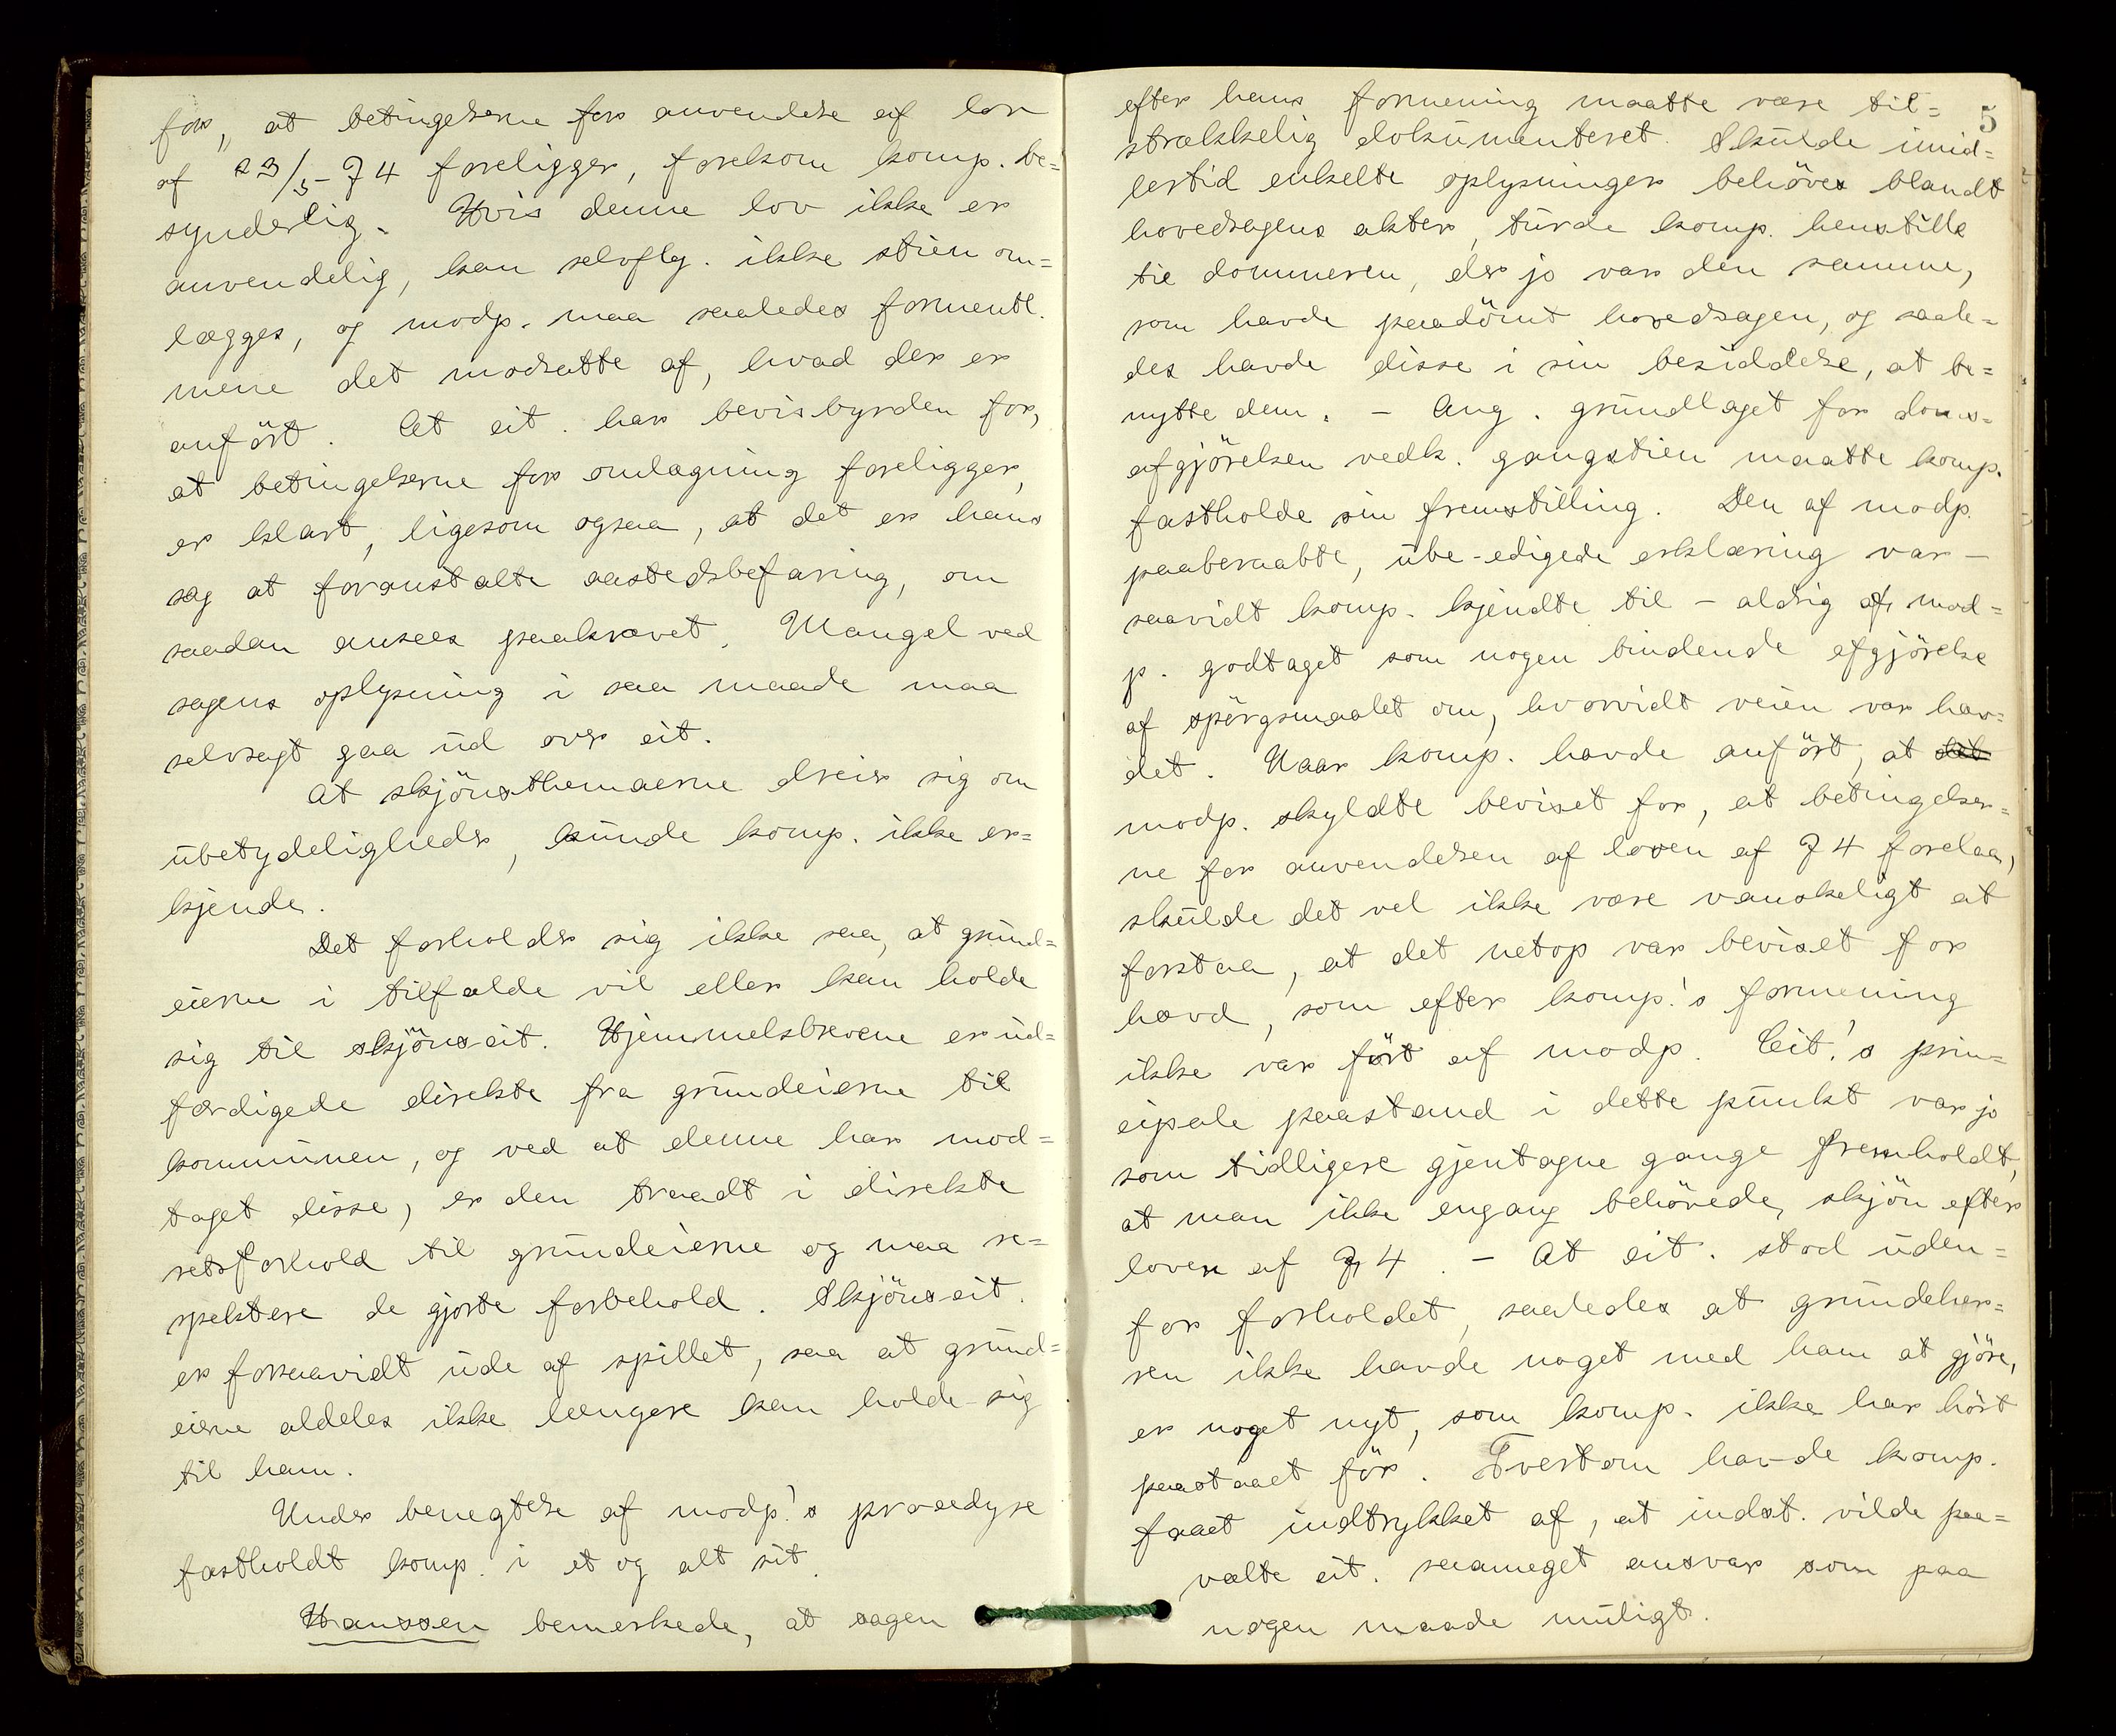 for, at betingelserne for anvendelse af lov
af 23/5-74 foreligger, forekom komp. be=
synderlig. Hvis denne lov ikke er
anvendelig, kan selvflg. ikke stien om=
lægges, og modp. maa saaledes formentl.
mene det modsatte af, hvad der er
anført. At cit. har bevisbyrden for,
at betingelserne for omlægning foreligger,
er klart, ligesom ogsaa, at det er hans
sag at foranstalte aastedsbefaring, om
saadan ansees paakrævet. Mangel ved
sagens oplysning i saa maade maa
selvsagt gaa ud over cit.
At skjønsthemaerne dreier sig om
ubetydeligheder, kunde komp. ikke er=
kjende.
Det forholder sig ikke saa, at grund=
eierne i tilfælde vil eller kan holde
sig til skjønscit. Hjemmelsbrevene er ud=
færdigede direkte fra grundeierne til
kommunen, og ved at denne har mod=
taget disse, er den traadt i direkte
retsforhold til grundeierne og maa re=
spektere de gjorte forbehold. Skjønscit.
er forsaavidt ude af spillet, saa at grund=
eierne aldeles ikke længere kan holde sig
til ham.
Under benegtelse af modp.'s procedyre
fastholdt komp. i et og alt sit.
Hanssen bemerkede, at sagen
5
efter hans formening maatte være til=
strækkelig dokumenteret. Skulde imid=
lertid enkelte oplysninger behøves blandt
hovedsagens akter, turde komp. henstille
til dommeren, der jo var den samme,
som havde paadømt hovedsagen, og saale=
des havde disse i sin besiddelse, at be=
nytte dem. - Ang. grundlaget for doms=
afgjørelsen vedk. gangstien maatte komp.
fastholde sin fremstilling. Den af modp.
paaberaabte, ube-edigede erklæring var -
saavidt komp. kjendte til - aldrig af mod=
p. godtaget som nogen bindende afgjørelse
af spørgsmaalet om, hvorvidt veien var hæv=
det. Naar komp. havde anført, at det
modp. skyldte beviset for, at betingelser=
ne for anvendelsen af loven af 74 forelaa,
skulde det vel ikke være vanskeligt at
forstaa, at det netop var beviset for
hævd, som efter komp.'s formening
ikke var ført af modp. Cit.'s prin=
cipale paastand i dette punkt var jo
som tidligere gjentagne gange fremholdt,
at man ikke engang behøvede skjøn efter
loven af 74. - At cit. stod uden=
for forholdet, saaledes at grundeier=
ren ikke havde noget med ham at gjøre,
er noget nyt, som komp. ikke har hørt
paastaaet før. Tvertom havde komp.
faaet indtrykket af, at indst. vilde paa=
vælte cit. saameget ansvar som paa
nogen maade muligt.